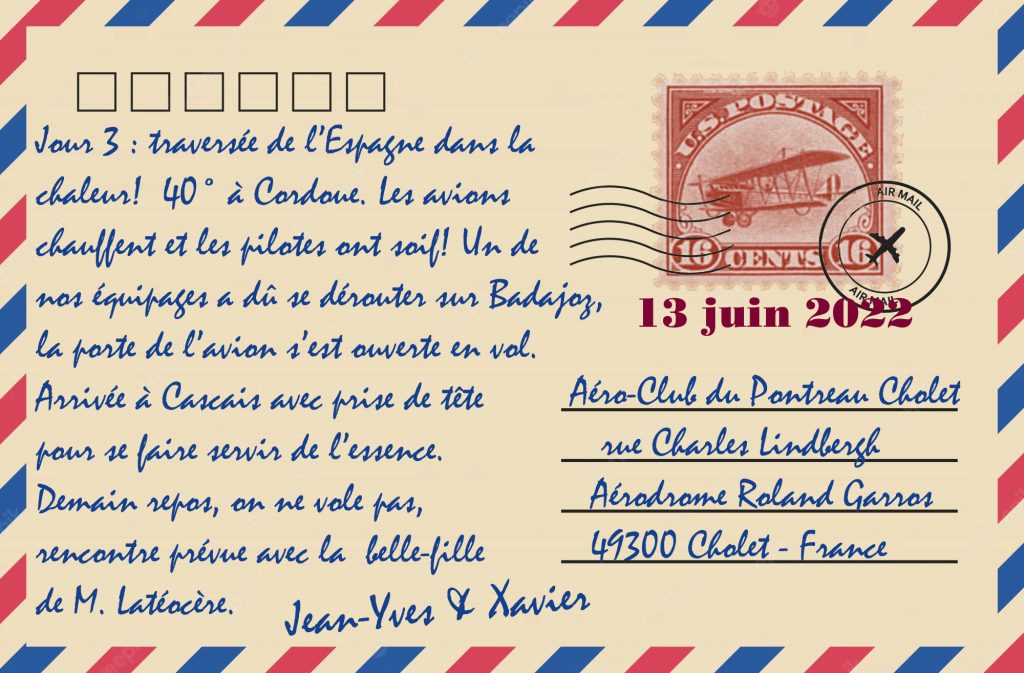 Jour 3 : traversée de l'Espagne dans la
chaleur! 40° à Cordoue. Les avions
chauffent et les pilotes ont soif! Un de
nos équipages a dû se dérouter sur Badajoz,
la porte de l'avion s'est ouverte en vol.
Arrivée à Cascais avec prise de tête
pour se faire servir de l'essence.
Demain repos, on ne vole pas,
rencontre prévue avec la belle-fille
de M. Latéocère.
Jean-Yves & Xavier
U.S. POSTAGE
16 CENTS 16
AIR MAIL
AIR MAIL
13 juin 2022
Aéro-Club du Pontreau Cholet
rue Charles Lindbergh
Aérodrome Roland Garros
49300 Cholet - France